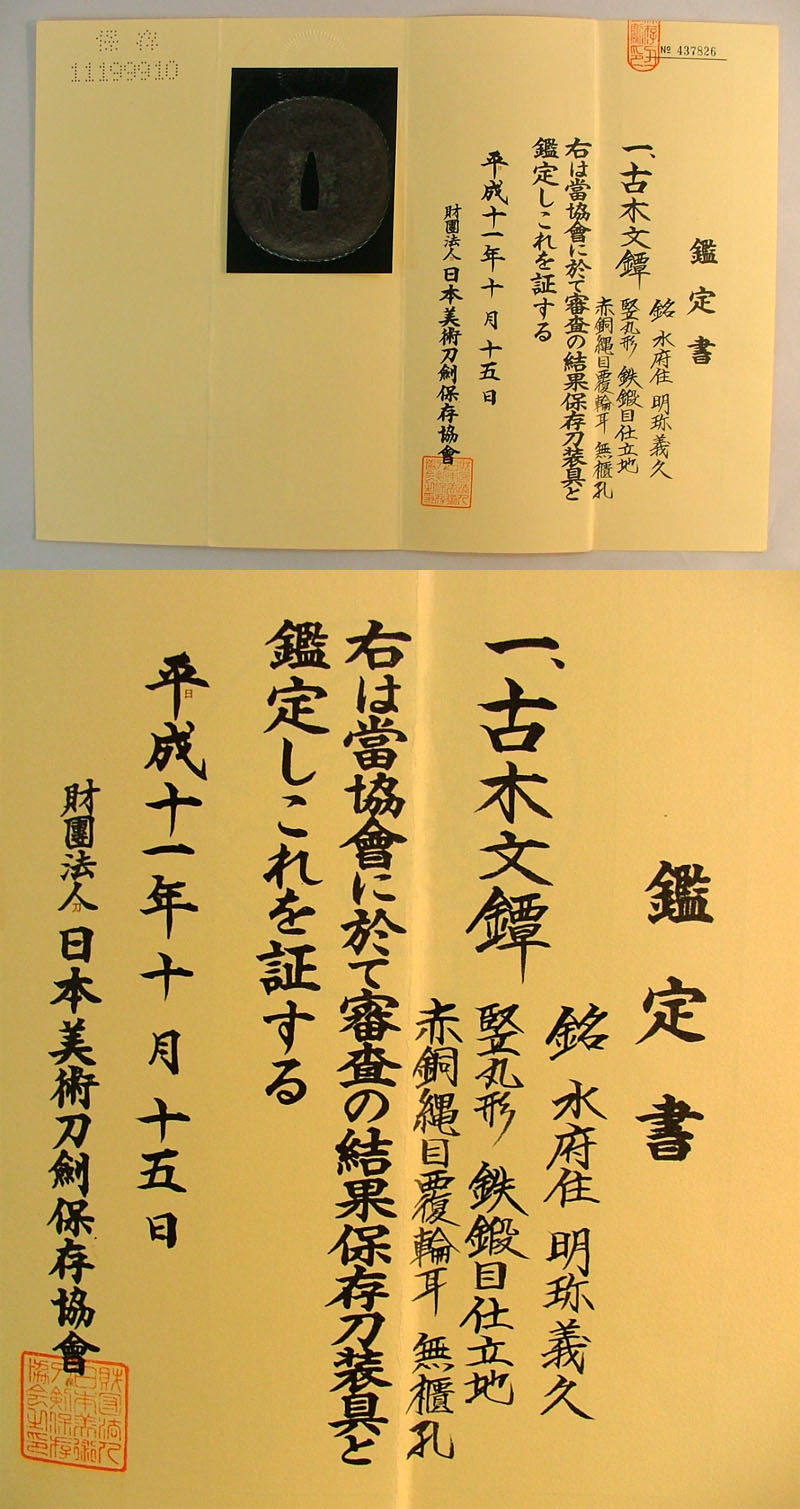 保存
11199910
№ 437826
鑑定書
一、古木文鐔
銘 水府住 明珎義久
竪丸形 鉄鍛目仕立地
赤銅縄目覆輪耳 無櫃孔
右は當協會に於て審査の結果保存刀装具と
鑑定しこれを証する
平成十一年十月十五日
財團法人 日本美術刀劍保存協會
鑑定書
一、古木文鐔
銘 水府住 明珎義久
竪丸形 鉄鍛目仕立地
赤銅縄目覆輪耳 無櫃孔
右は當協會に於て審査の結果保存刀装具と
鑑定しこれを証する
平成十一年十月十五日
財團法人 日本美術刀劍保存協會